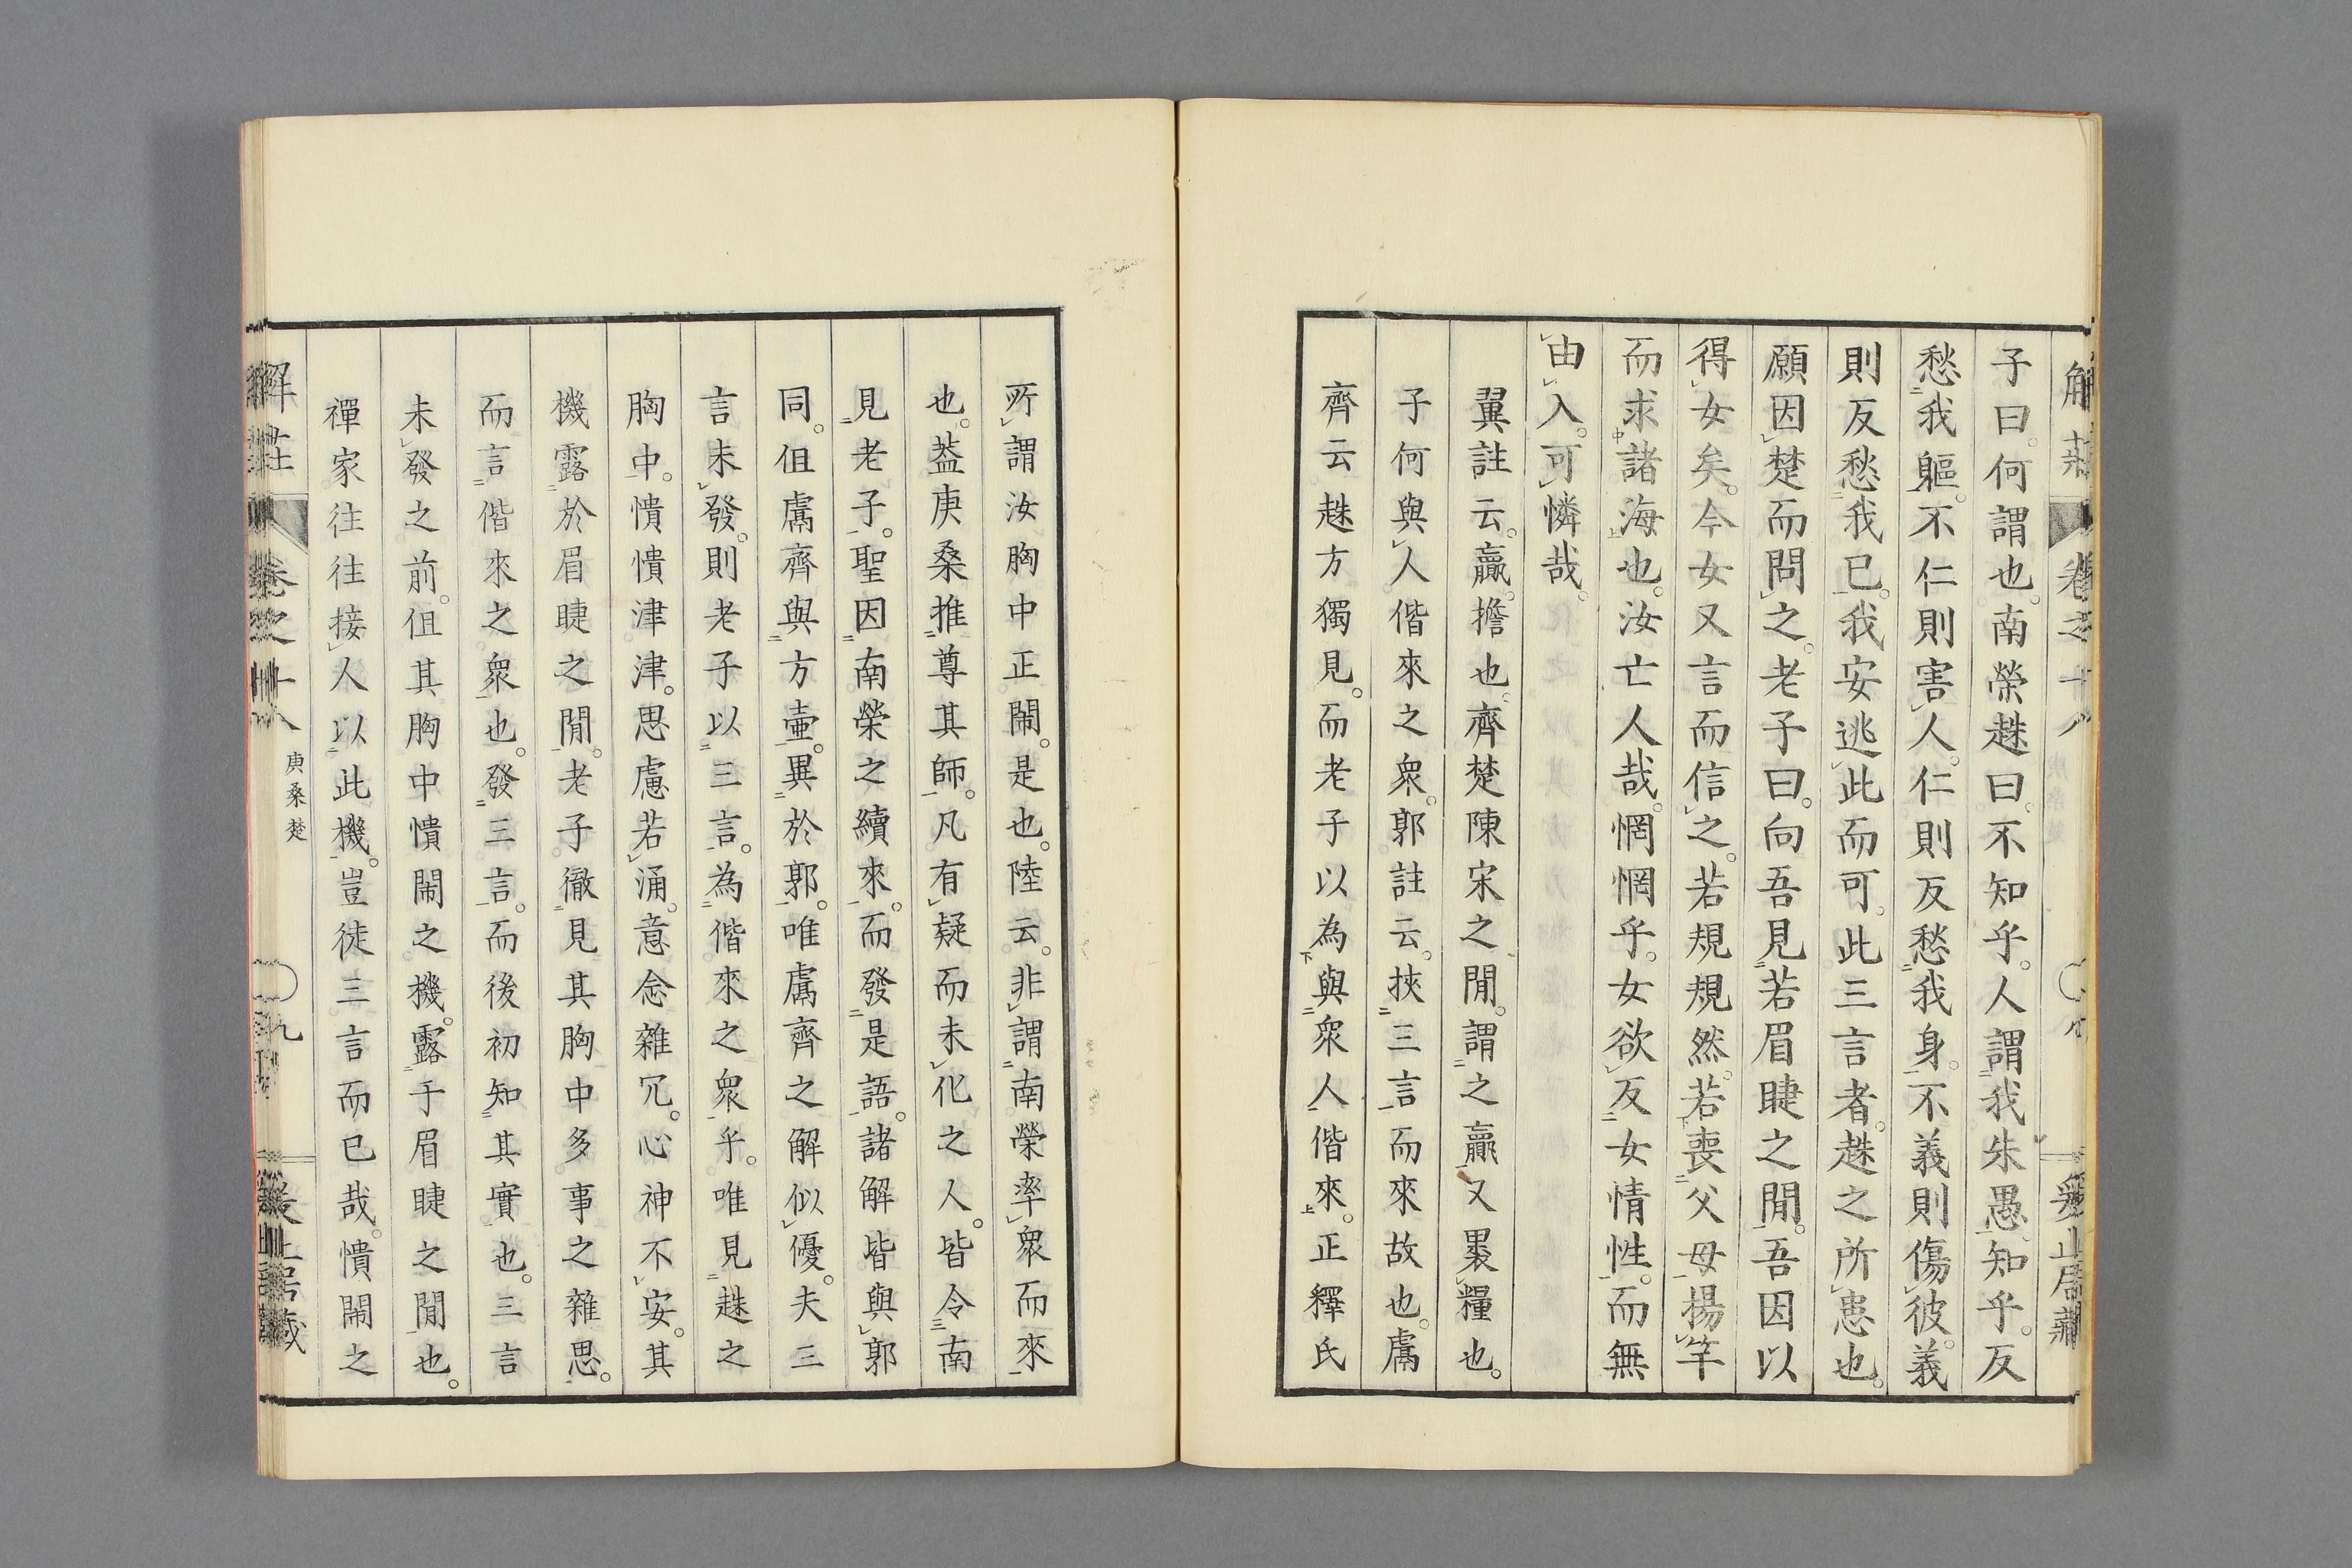 子曰。何謂也。南榮趎曰。不知乎。人謂我朱愚。知乎。反
愁我軀。不仁則害人。仁則反愁我身。不義則傷彼。義
則反愁我已。我安逃此而可。此三言者。趎之所患也。
願因楚而問之。老子曰。向吾見若眉睫之閒。吾因以
得女矣。今女又言而信之。若規規然。若喪父母揭竿
而求諸海也。汝亡人哉。惘惘乎。女欲反女情性。而無
由入。可憐哉。
翼註云。贏。擔也。齊楚陳宋之閒。謂之贏。又裹糧也。
子何與人偕來之衆。郭註云。挾三言而來故也。鬳
齊云趎方獨見。而老子以為與衆人偕來。正釋氏
所謂汝胸中正鬧。是也。陸云。非謂南榮率衆而來
也。蓋庚桑推尊其師。凡有疑而未化之人。皆令南
見老子。聖因南榮之續來。而發是語。諸解皆與郭
同。但鬳齊與方壷。異於郭。唯鬳齊之解似優。夫三
言未發。則老子以三言。為偕來之衆乎。唯見趎之
胸中。憒憒津津。思慮若涌。意念雜冗。心神不安。其
機露於眉睫之閒。老子徹見其胸中多事之雜思。
而言偕來之衆也。發三言。而後初知其實也。三言
未發之前。但其胸中憒鬧之機。露于眉睫之閒也。
禪家往往接人以此機。豈徒三言而已哉。憒鬧之
解莊
卷之十八
庚桑楚
九